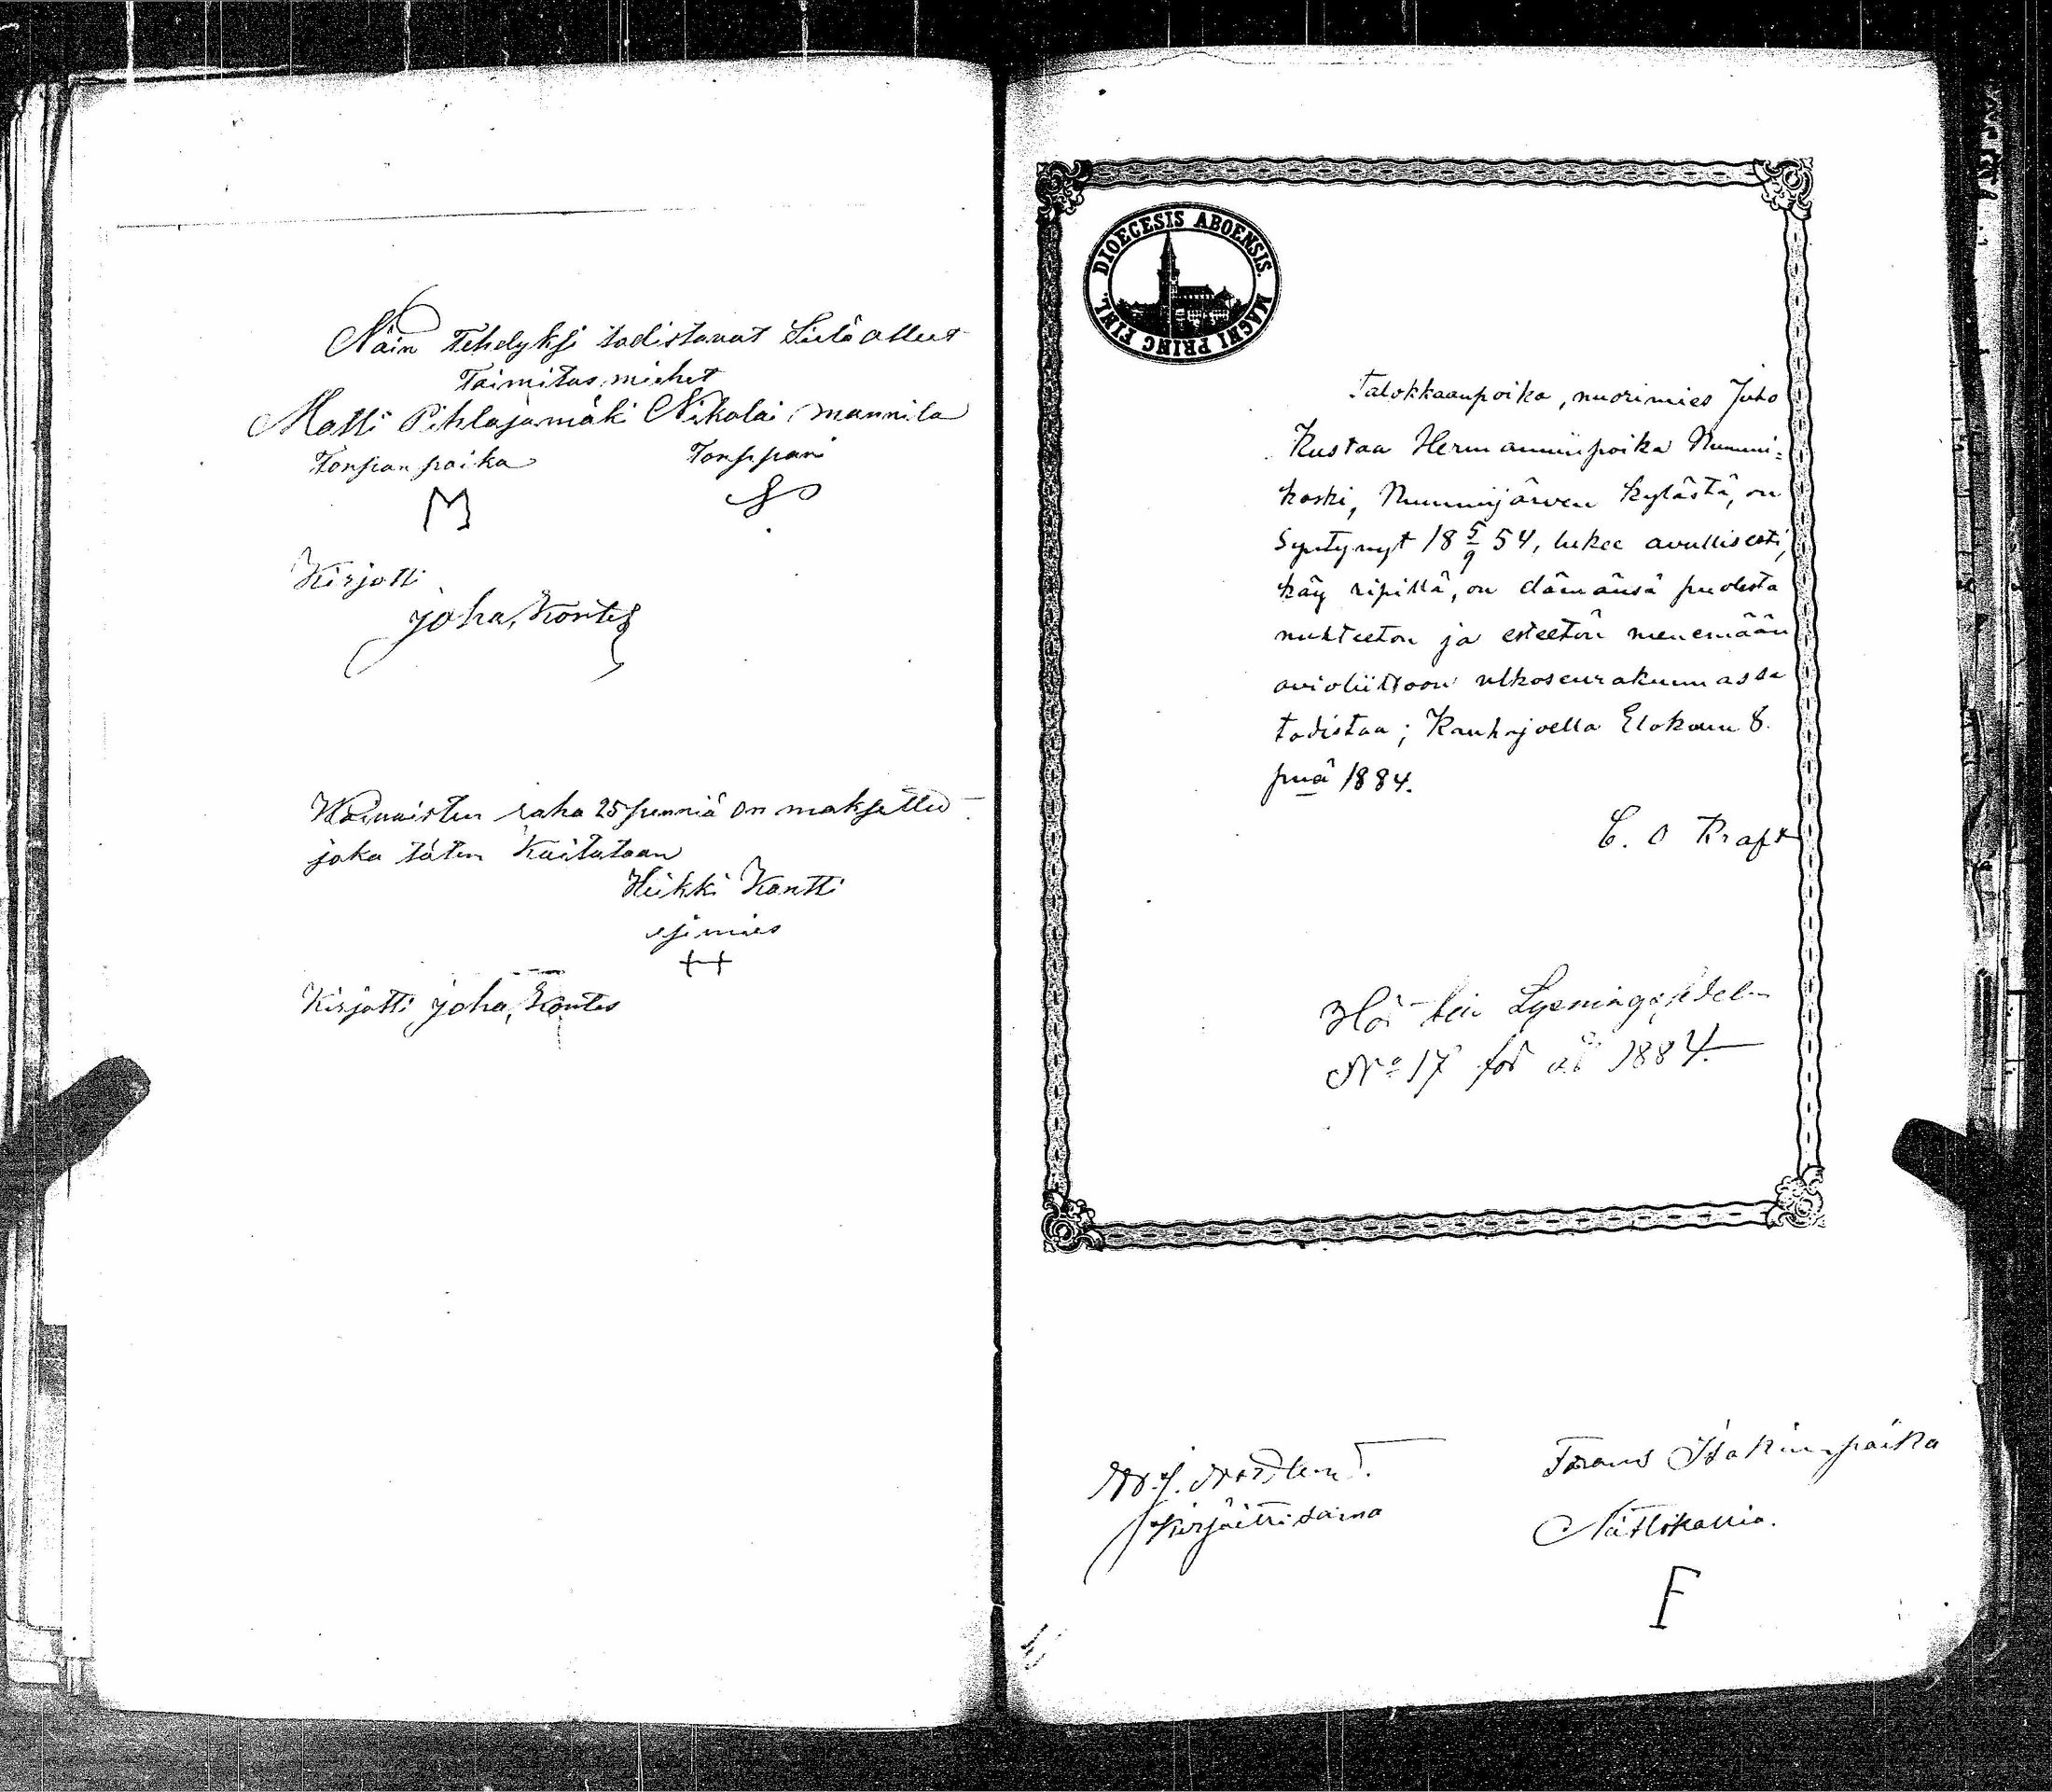 Näin Tehdyksi todistavat Siilä olleet
Toimitus miehet
Matti Pihlajamäki Nikolai mannila
Tonpan poika Tonppari
M
Kirjotti
joha, Kontes
Waivaisten raha 25 penniä on maksettu
joka täten Kuitataan
Heikki Kontti
esimies
Kirjotti joha, Kontes
DIOECESIS ABOENSIS. MAGNI PRINC FINL.
Talokkaanpoika, nuorimies Juho
Kustaa Hermanninpoika Nummi=
koski, Nummijärven kylästä, on
Syntynyt 18 5/9 54, lukee avullisesti,
käy ripillä, on elämänsä puolesta
nuhteeton ja esteetön menemään
avioliittoon ulkoseurakunnassa
todistaa; Kauhajoella Elokuun 8.
pnä 1884.
C. O Kraft
Hör till Lysningssedeln
No 17 för år 1884.
Frans Isakinpoika
Kirjoitti
Nättikallio.
F